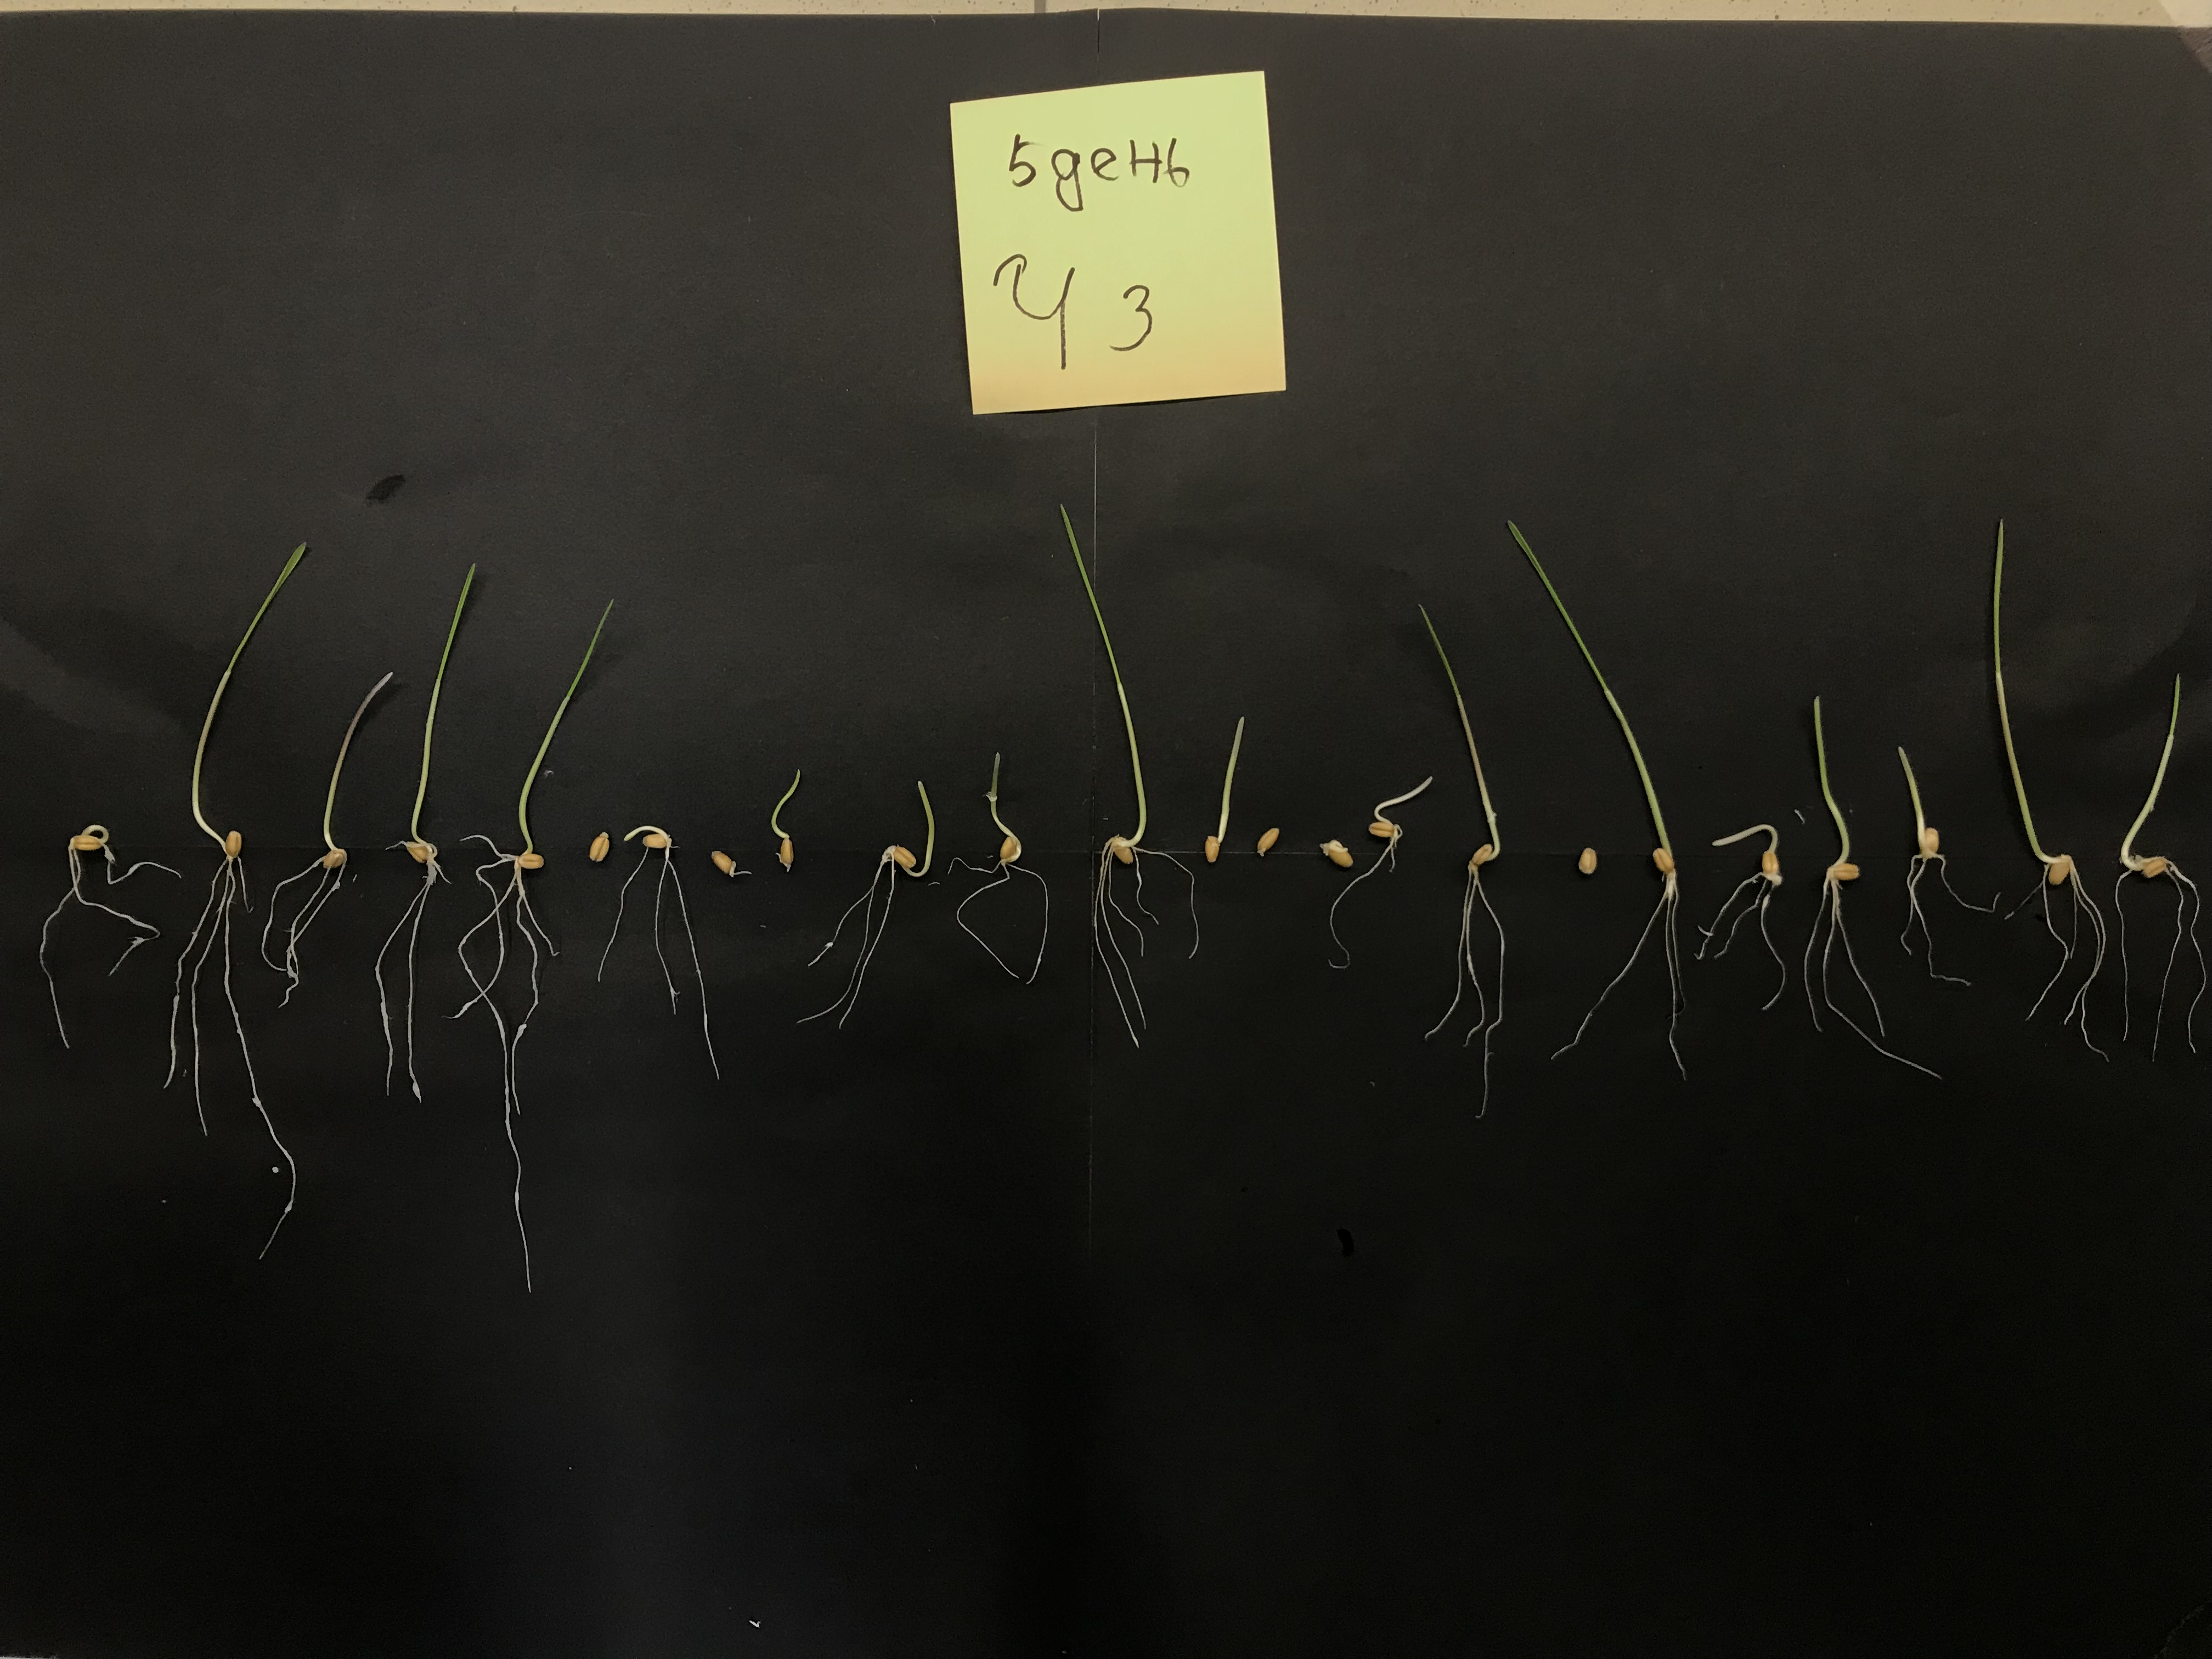 5 день
Ч 3